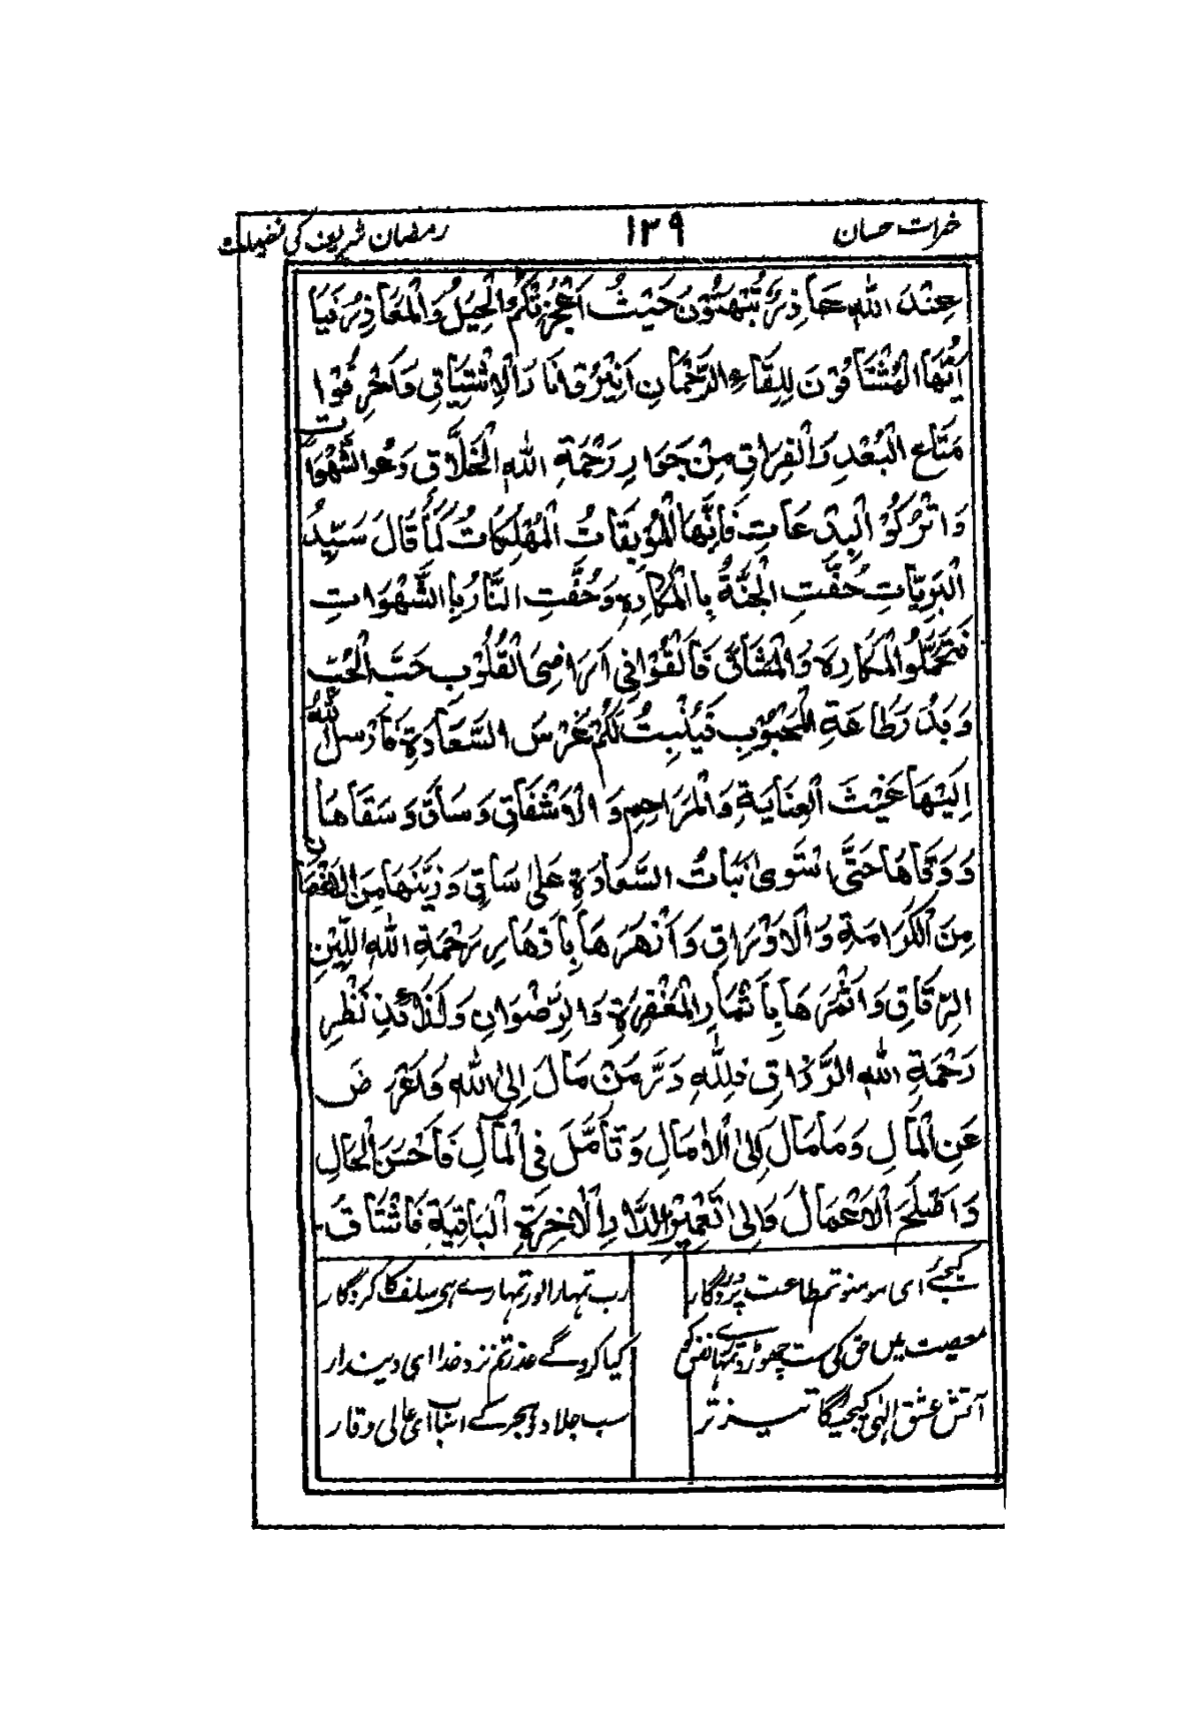 خیرات حسان ۱۳۹ رمضان شریف کی فضیلت
عِنْدَ اللهِ مَعَاذِيرُ تُبْهَتُونَ حَيْثُ اَعْجَزَتْكُمُ الْحِيَلُ وَالْمَعَاذِيرُ فَيَا
اَيُّهَا الْمُشْتَاقُوْنَ لِلِقَاءِ الرَّحْمَانِ اَنِيْرُوْا نَارَ الْاِشْتِيَاقِ وَاَحْرِقُوْا
مَتَاعَ الْبُعْدِ وَالْفِرَاقِ مِنْ جَوَارِ رَحْمَةِ اللهِ الْخَلَّاقِ وَدَعُوا الشَّهَوَاتِ
وَاتْرُكُوْ الْبِدْعَاتِ فَاِنَّهَا الْمُوْبِقَاتُ الْمُهْلِكَاتُ كَمَا قَالَ سَيِّدُ
الْبَرِيَّاتِ حُفَّتِ الْجَنَّةُ بِالْمَكَارِهِ وَحُفَّتِ النَّارُ بِالشَّهْوَاتِ
فَتَحَمَّلُوا الْمَكَارِهَ وَالْمَشَاقَّ فَاَلْقُوْا فِي اَرَاضِيَ الْقُلُوْبِ حَبَّ الْحُبِّ
وَبَذْرَ طَاعَةِ الْمَحْبُوْبِ فَيُنْبِتُ لَكُمْ غَرْسَ السَّعَادَةِ فَاَرْسَلَ اللهُ
اِلَيْهَا غَيْثَ الْعِنَايَةِ وَالْمَرَاحِمِ وَالْاَشْفَاقِ وَسَاقَ وَسَقَاهَا
وَوَقَاهَا حَتَّى اسْتَوىٰ نَبَاتُ السَّعَادَةِ عَلىٰ سَاقٍ وَزَيَّنَهَا مِنَ الْاَغْصَانِ
مِنَ الْكَرَامَةِ وَالْاَوْرَاقِ وَاَنْهَرَهَا بِاَنْهَارِ رَحْمَةِ اللهِ اللَّيِّنِ
الرِّقَاقِ وَاَثْمَرَهَا بِاَثْمَارِ الْمَغْفِرَةِ وَالرِّضْوَانِ وَلَذَائِذِ نَظَرِ
رَحْمَةِ اللهِ الرَّزَّاقِ فَلِلّٰهِ دَرُّ مَنْ مَالَ اِلىَ اللهِ وَاَعْرَضَ
عَنِ الْمَالِ وَمَا مَالَ اِلىَ الْاٰمَالِ وَتَاَمَّلَ فِي الْمَآلِ فَاَحْسَنَ الْحَالَ
وَاَصْلَحَ الْاَعْمَالَ وَاِلىٰ تَعْمِيْرِ الدَّارِ الْاٰخِرَةِ الْبَاقِيَةِ فَاشْتَاقَ
کیجئے ای مومنو تم طاعت پروردگار رب تمہارا اور تمہارے ہی سلف کا کردگار
معصیت میں حق کی مت چھوڑو تمہارے نفس کو کیا کروگے عذر تم نزد خدا ای دیندار
آتش عشق الٰہی کیجیگا تیز تر سب جلا دو ہجر کے اسباب ای عالی وقار